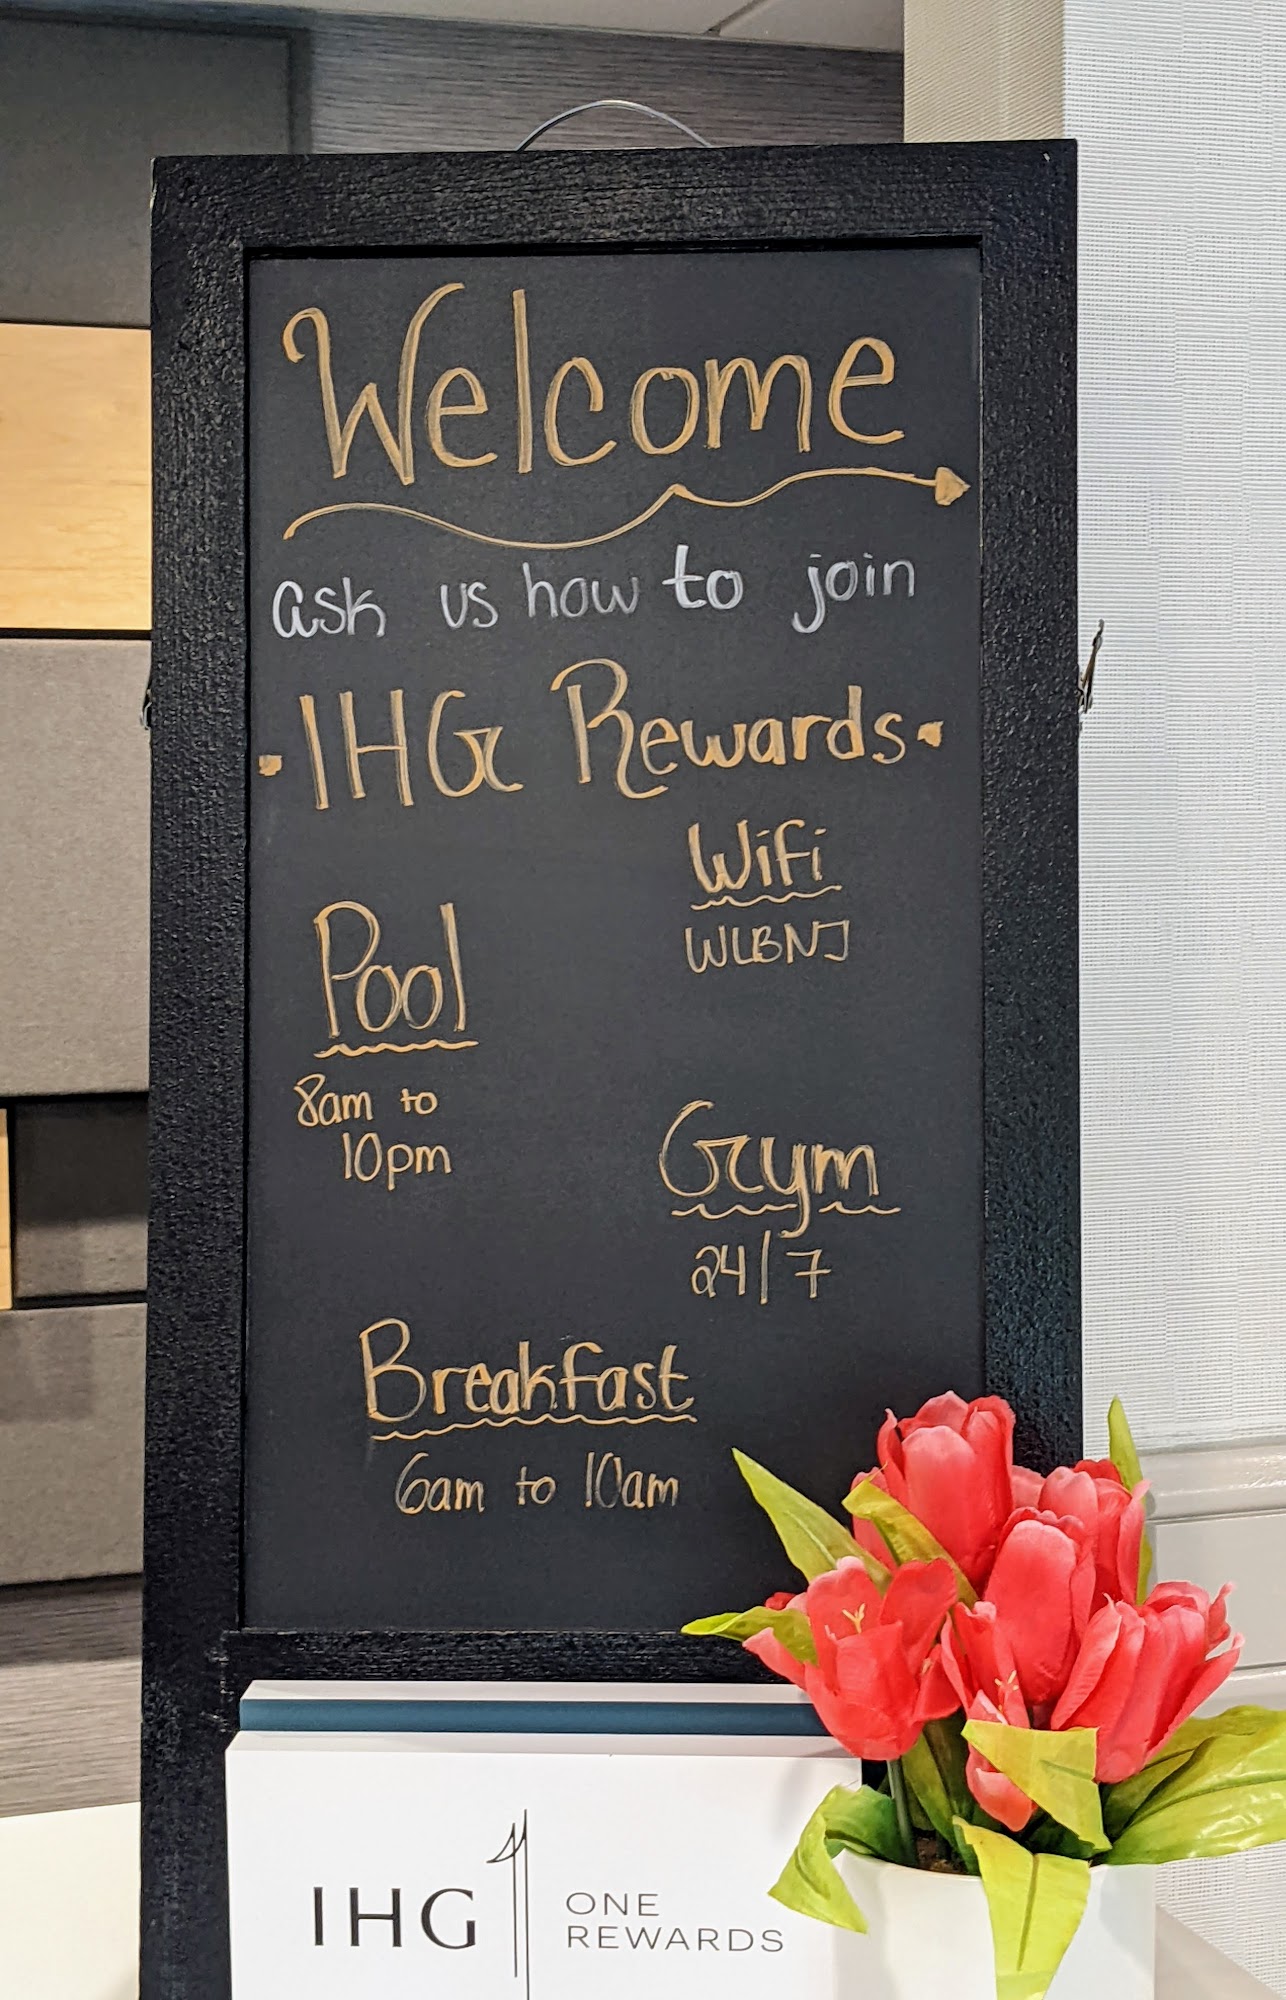 Welcome
ask us how to join
IHG Rewards
Wifi
WLBNJ
Pool
8am to
10pm
Gym
24/7
Breakfast
6am to 10am
IHG
ONE
REWARDS